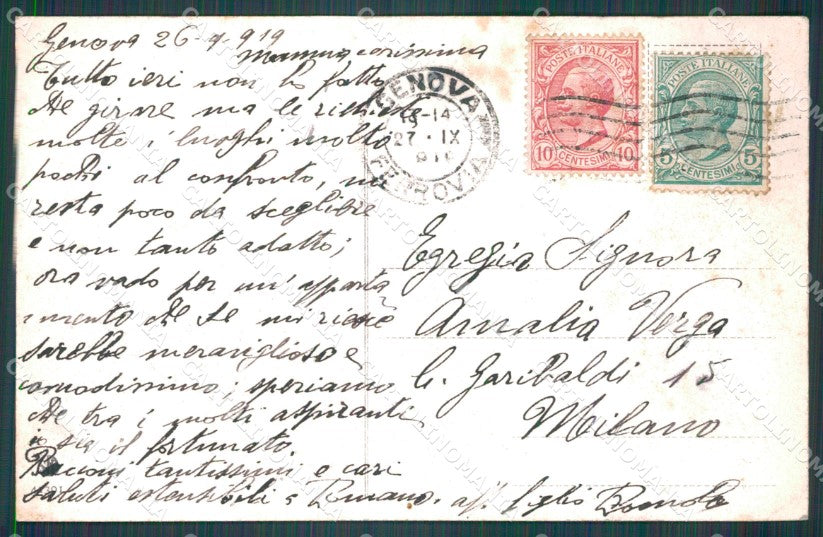 Genova 26-9-919
Mamma carissima
Tutto ieri non ho fatto
che girare ma le richieste
molte i luoghi molto
pochi al confronto, mi
resta poco da scegliere
e non tanto adatto;
ora vado per un'apparta
mento che se mi riesce
sarebbe meraviglioso e
comodissimo; speriamo
che tra i molti aspiranti
io sia il fortunato.
Bacioni tantissimi e cari
saluti estensibili a aff. figlio Romolo
GENOVA
13-14
27 · IX
FERROVIA
POSTE ITALIANE
10 CENTESIMI 10
POSTE ITALIANE
5 CENTESIMI 5
Egregia Signora
Amalia Verga
C. Garibaldi 15
Milano
CARTOLINOMANIA